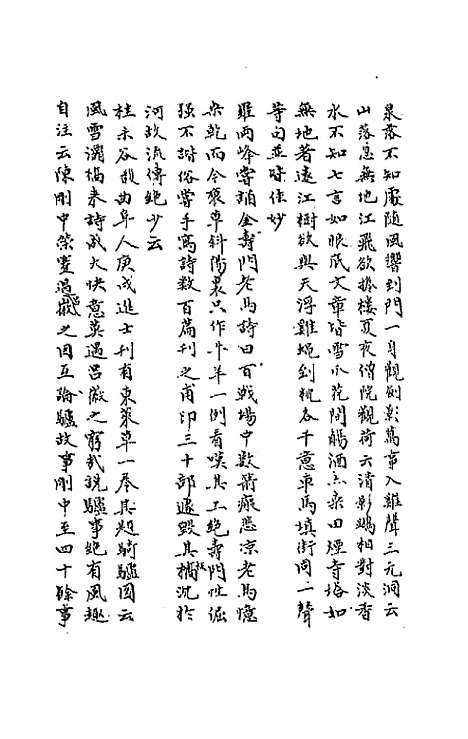 泉落不知處隨風響到門一身觀劍影萬事入雞聲三元洞云
山落忽無地江飛欲撼樓夏夜僧院觀荷云清影鷗相對淡香
水不知七言如眼底文章皆雪爪花間觴酒亦桑田煙寺塔如
無地著遠江樹欲與天浮雞蟲到枕各千意車馬填街同一聲
等句並時佳妙
雖兩峰嘗誦金壽門老馬詩曰百戰場中數箭瘢悲涼老馬憶
桑乾而今衰草斜陽裏只作牛羊一例看嘆其工絕壽門性倔
强不諧俗嘗手寫詩數百篇刊之甫印三十部遽毀其板沉於
河故流傳絕少云
桂未谷馥曲阜人庚戌進士刊有東萊草一卷其題騎驢圖云
風雪灞橋來詩成大快意莫遇呂徽之窮我說驢事絕有風趣
自注云陳剛中榮蹇過徽之因互論驢故事剛中至四十餘事